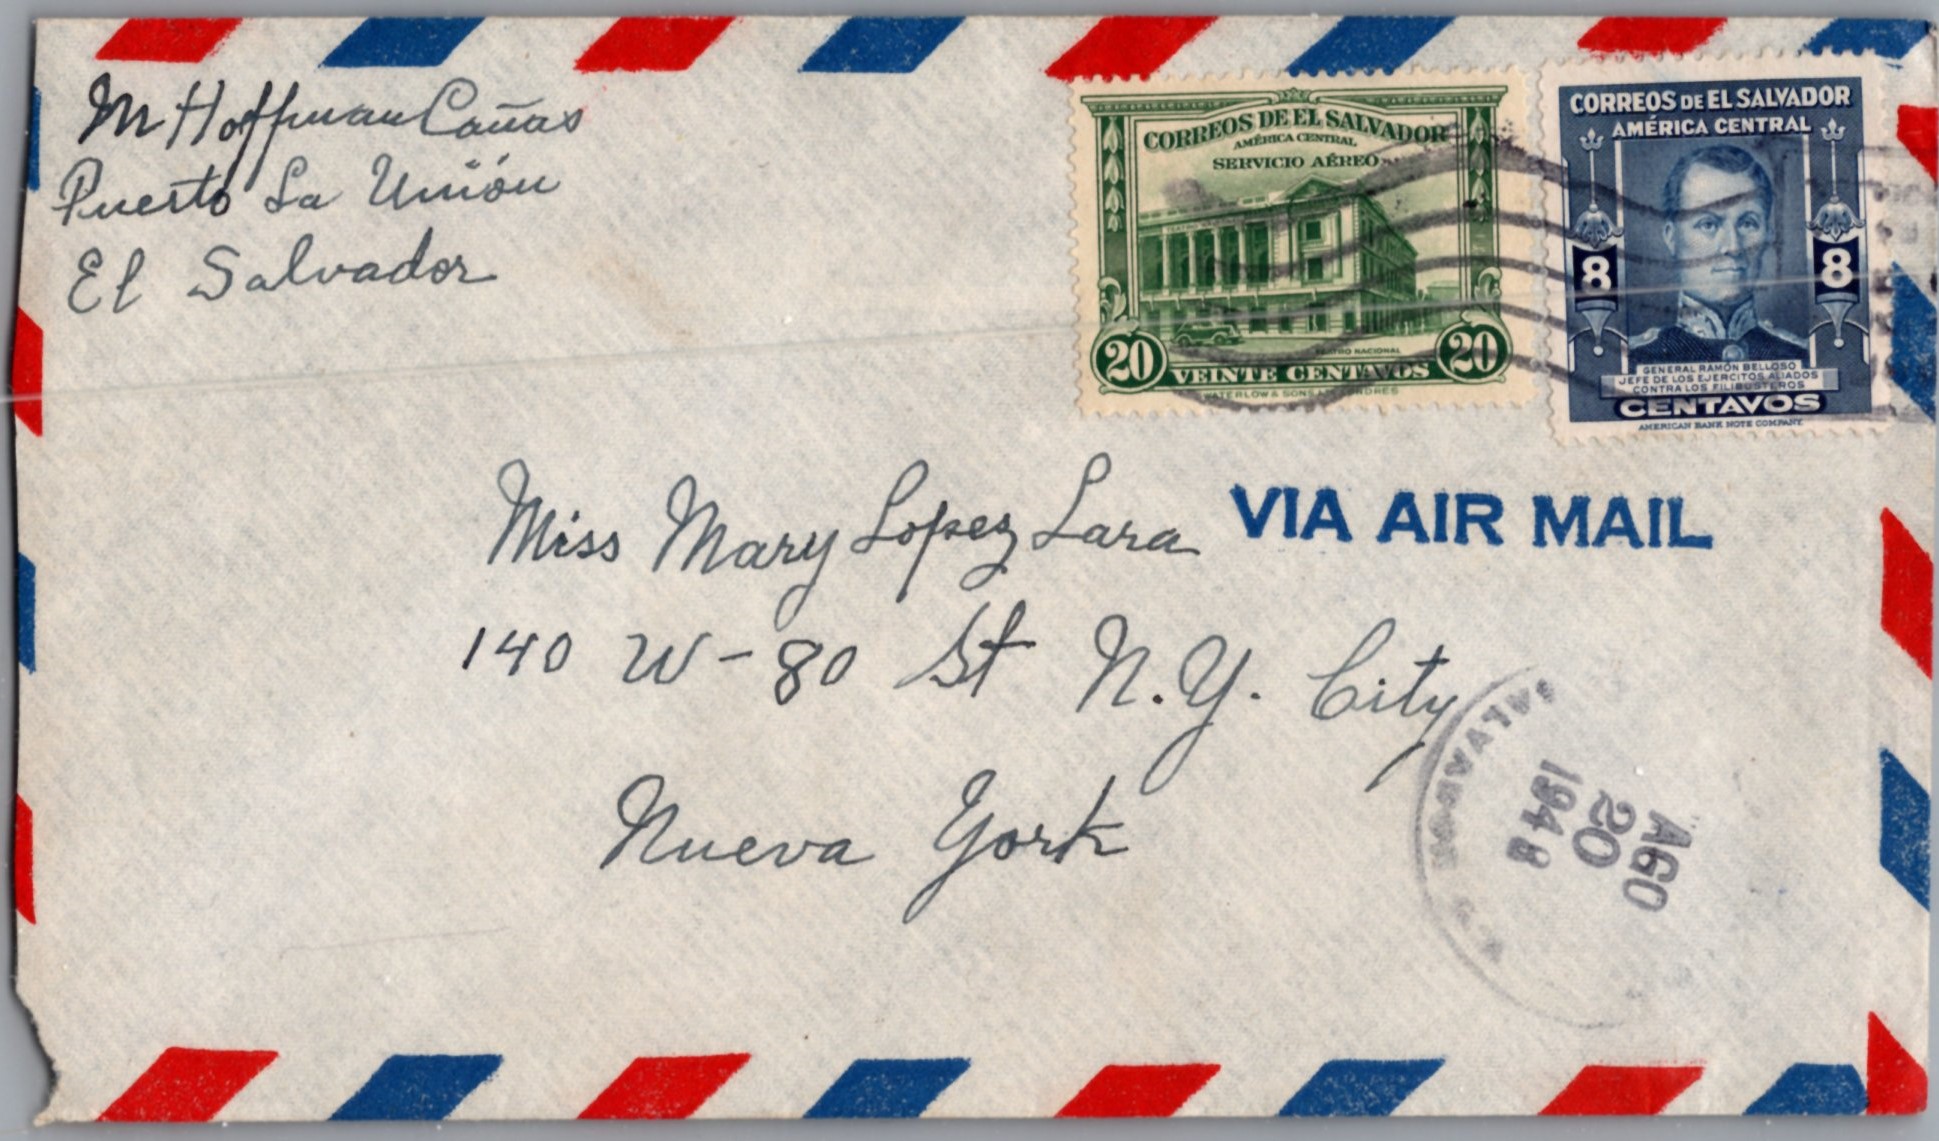 M Hoffman Cañas
Puerto La Unión
El Salvador
CORREOS DE EL SALVADOR
AMÉRICA CENTRAL
SERVICIO AÉREO
TEATRO NACIONAL
20 VEINTE CENTAVOS 20
WATERLOW & SONS LONDRES
CORREOS DE EL SALVADOR
AMÉRICA CENTRAL
8 8
GENERAL RAMÓN BELLOSO
JEFE DE LOS EJERCITOS ALIADOS
CONTRA LOS FILIBUSTEROS
CENTAVOS
AMERICAN BANK NOTE COMPANY
VIA AIR MAIL
Miss Mary Lopez Lara
140 W-80 St N.Y. City
Nueva York
SALVADOR
AGO
20
1948